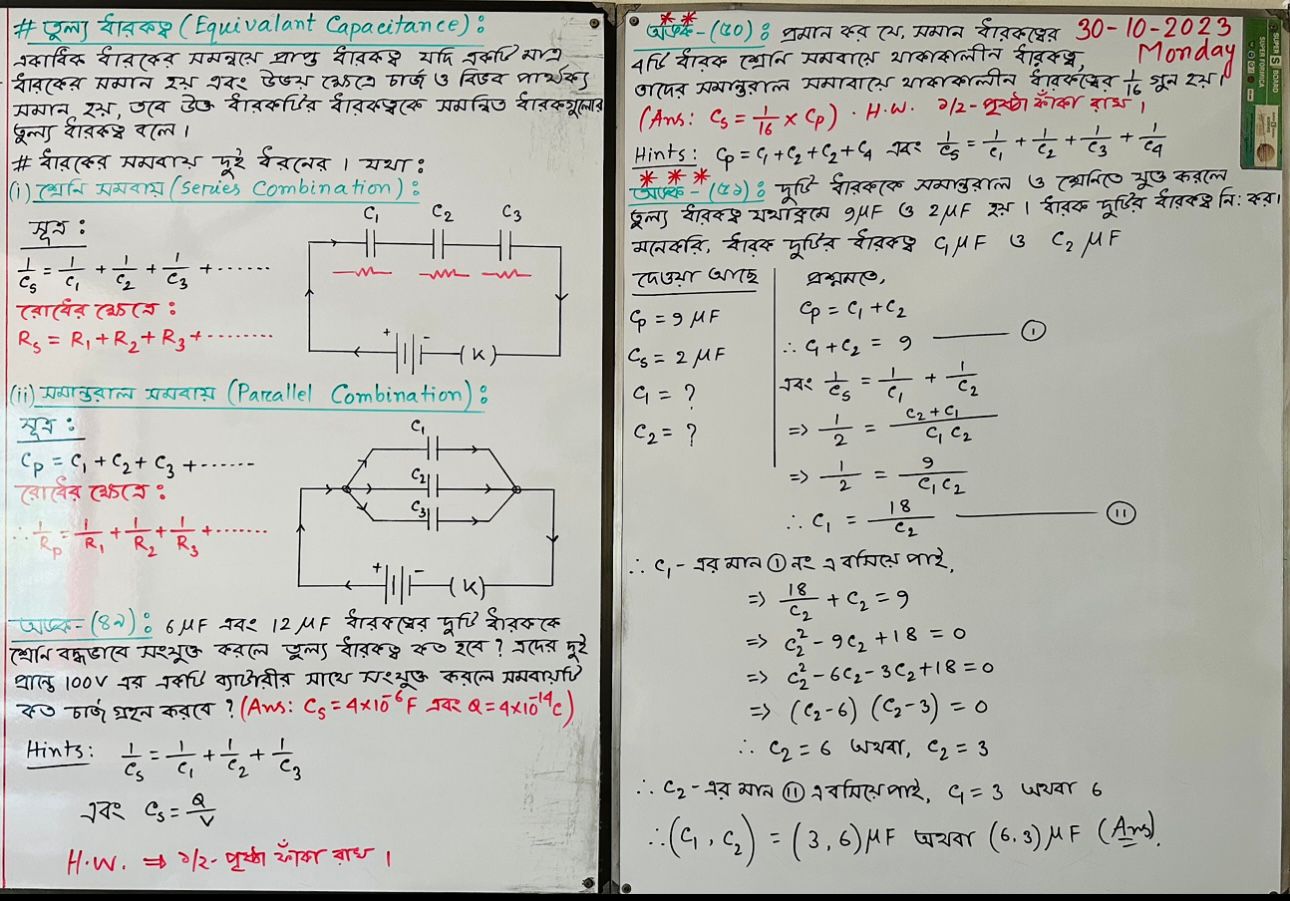 # তুল্য ধারকত্ব (Equivalant Capacitance) :
একাধিক ধারকের সমন্বয়ে প্রাপ্ত ধারকত্ব যদি একটি মাত্র
ধারকের সমান হয় এবং উভয় ক্ষেত্রে চার্জ ও বিভব পার্থক্য
সমান হয়, তবে উক্ত ধারকটির ধারকত্বকে সমন্বিত ধারকগুলোর
তুল্য ধারকত্ব বলে।
# ধারকের সমবায় দুই ধরনের । যথা :
(i) শ্রেনি সমবায় (Series Combination) :
সূত্র :
1/Cs = 1/C₁ + 1/C₂ + 1/C₃ + .......
রোধের ক্ষেত্রে :
Rs = R₁ + R₂ + R₃ + ........
C₁ C₂ C₃
+ − (K)
(ii) সমান্তরাল সমবায় (Parallel Combination) :
সূত্র :
Cp = C₁ + C₂ + C₃ + .......
রোধের ক্ষেত্রে :
∴ 1/Rp = 1/R₁ + 1/R₂ + 1/R₃ + .......
C₁
C₂
C₃
+ − (K)
অংক - (৪৯) : 6 μF এবং 12 μF ধারকত্বের দুটি ধারককে
শ্রেনি বদ্ধভাবে সংযুক্ত করলে তুল্য ধারকত্ব কত হবে ? এদের দুই
প্রান্তে 100V এর একটি ব্যাটারীর সাথে সংযুক্ত করলে সমবায়টি
কত চার্জ গ্রহন করবে ? (Ans: Cs = 4×10⁻⁶F এবং Q = 4×10⁻¹⁴C)
Hints: 1/Cs = 1/C₁ + 1/C₂ + 1/C₃
এবং Cs = Q/V
H.W. ⇒ ১/২- পৃষ্ঠা ফাঁকা রাখ ।
30-10-2023
Monday
* *
অংক - (৫০) : প্রমান কর যে, সমান ধারকত্বের
৪টি ধারক শ্রেনি সমবায়ে থাকাকালীন ধারকত্ব,
তাদের সমান্তরাল সমাবায়ে থাকাকালীন ধারকত্বের 1/16 গুন হয়।
(Ans: Cs = 1/16 × Cp) . H.W. ১/২- পৃষ্ঠা ফাঁকা রাখ ।
Hints: Cp = C₁ + C₂ + C₂ + C₄ এবং 1/Cs = 1/C₁ + 1/C₂ + 1/C₃ + 1/C₄
* * *
অংক - (৫১) : দুটি ধারককে সমান্তরাল ও শ্রেনিতে যুক্ত করলে
তুল্য ধারকত্ব যথাক্রমে 9μF ও 2μF হয় । ধারক দুটির ধারকত্ব নি: কর।
মনেকরি, ধারক দুটির ধারকত্ব C₁ μF ও C₂ μF
দেওয়া আছে
Cp = 9 μF
Cs = 2 μF
C₁ = ?
C₂ = ?
প্রশ্নমতে,
Cp = C₁ + C₂
∴ C₁ + C₂ = 9 ——— (I)
এবং 1/Cs = 1/C₁ + 1/C₂
=> 1/2 = (C₂ + C₁)/(C₁ C₂)
=> 1/2 = 9/(C₁C₂)
∴ C₁ = 18/C₂ ——— (II)
∴ C₁ - এর মান (I) নং এ বসিয়ে পাই,
=> 18/C₂ + C₂ = 9
=> C₂² - 9C₂ + 18 = 0
=> C₂² - 6C₂ - 3C₂ + 18 = 0
=> (C₂ - 6) (C₂ - 3) = 0
∴ C₂ = 6 অথবা, C₂ = 3
∴ C₂ - এর মান (II) এ বসিয়ে পাই, C₁ = 3 অথবা 6
∴ (C₁ , C₂) = (3, 6) μF অথবা (6. 3) μF (Ans).